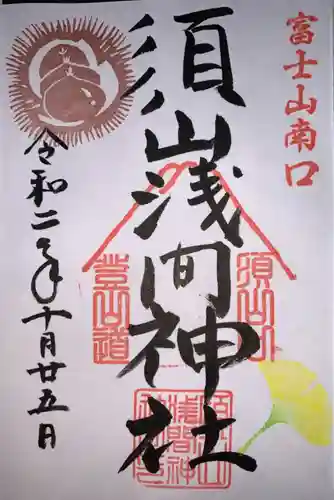 富士山南口
須山浅間神社
須山口
登山道
令和二年十月廿五日